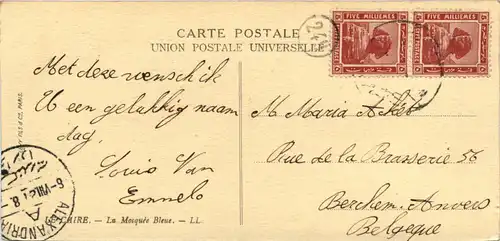 CARTE POSTALE
UNION POSTALE UNIVERSELLE
FIVE MILLIEMES
FIVE MILLIEMES
Met deze wensch ik
U een gelukkig naam
dag.
Louis Van
Emmelo
M Maria
Rue de la Brasserie 56
Berchem-Anvers
Belgique
ALEXANDRIA
LE CAIRE. - La Mosquée Bleue. - LL.